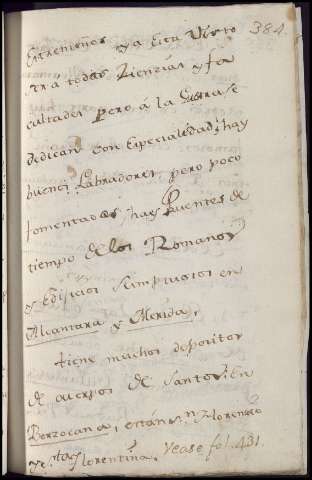 384.
Estremeños ya está visto
para todas Ziencias y fa
cultades pero á la Guerra se
dedican con Especialidad; hay
buenos Labradores pero poco
fomentados; hay Puentes de
tiempo de los Romanos
y Edificios Sumptuosos en
Alcantara y Merida.
tiene muchos depositos
de cuerpos de Santos; En
Berzocana, están Sn. Florencio
y Sta. Florentina. Vease fol. 431.